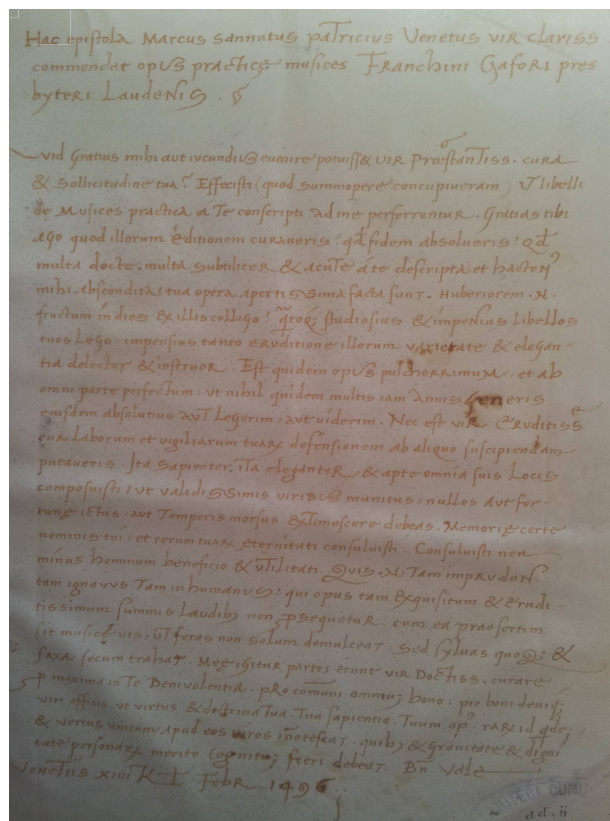 Hac epistola Marcus sannutus paTricius Venetus VIR clariss
commendat opus practicę musices Franchini Gafori pres
byteri Laudensis.
Quid Gratius mihi aut iucundius euenire potuiss& VIR Præstantiss. cura
& sollicitudine tua? Effecisti (quod summopere concupiueram) VT libelli
de Musices practica a Te conscripti ad me perferrentur. Gratias tibi
ago quod illorum editionem curaueris: qđ fidem absolueris: Qđ
multa docte. multa subtiliter & acute a te descripta: et hacten9
mihi abscondita: tua opera apertissima facta sunt. Huberiorem. N.
fructum in dies & illis colligo: studiosius & impensius libellos
tuos Lego: impensius tanto eruditione illorum varietate & elegan-
tia delector & instruor. Est quidem opus pulcherrimum, et ab
omni parte perfectum. vt nihil quidem multis iam Annis generis
eiusdem absolutius auT Legerim, aut uiderim. Nec est VIR Eruditiss
cur Laborum et vigiliarum tuarꝝ defensionem ab aliquo suscipiendam
putaueris. Ita sapienter. ita eleganter & apte omnia suis Locis
composuisti: ut validissimis viribus munitus, nullos Aut for-
tunę ictus, aut Temporis morsus &timescere debeas. Memorię certe
nominis tui, et rerum tuarꝝ ęternitati consuluisti. Consuluisti neu
minus hominum beneficio & vTilitati Quis. N. Tam imprudens.
tam ignauus Tam inhumanus: qui opus tam &xquisitum & erudi-
tissimum summis Laudibus non ꝓsequetur: cum ea praesertim
sit musicę vis, uT feras non solum demulceaT: sed syluas quoq; &
saxa secum trahat. Meę igitur partes erunt vir Doctiss. curare
ꝓ maxima in Te Beniuolentia. pRo comuni omniu; bono. pro boni deniq;
viri officio. ut virtus & doctrina Tua. Tua sapientia. Tuum op9. rarꝝ id qđe;
& verius vnicum, apud eos uiros inotescaT. quib; & Grauitate & digni
tate personarꝝ merito cognitu; fieri debeaT. Bn̄ Vale
Venetiis xiiii KL. Febr. 1496.
ad. ii